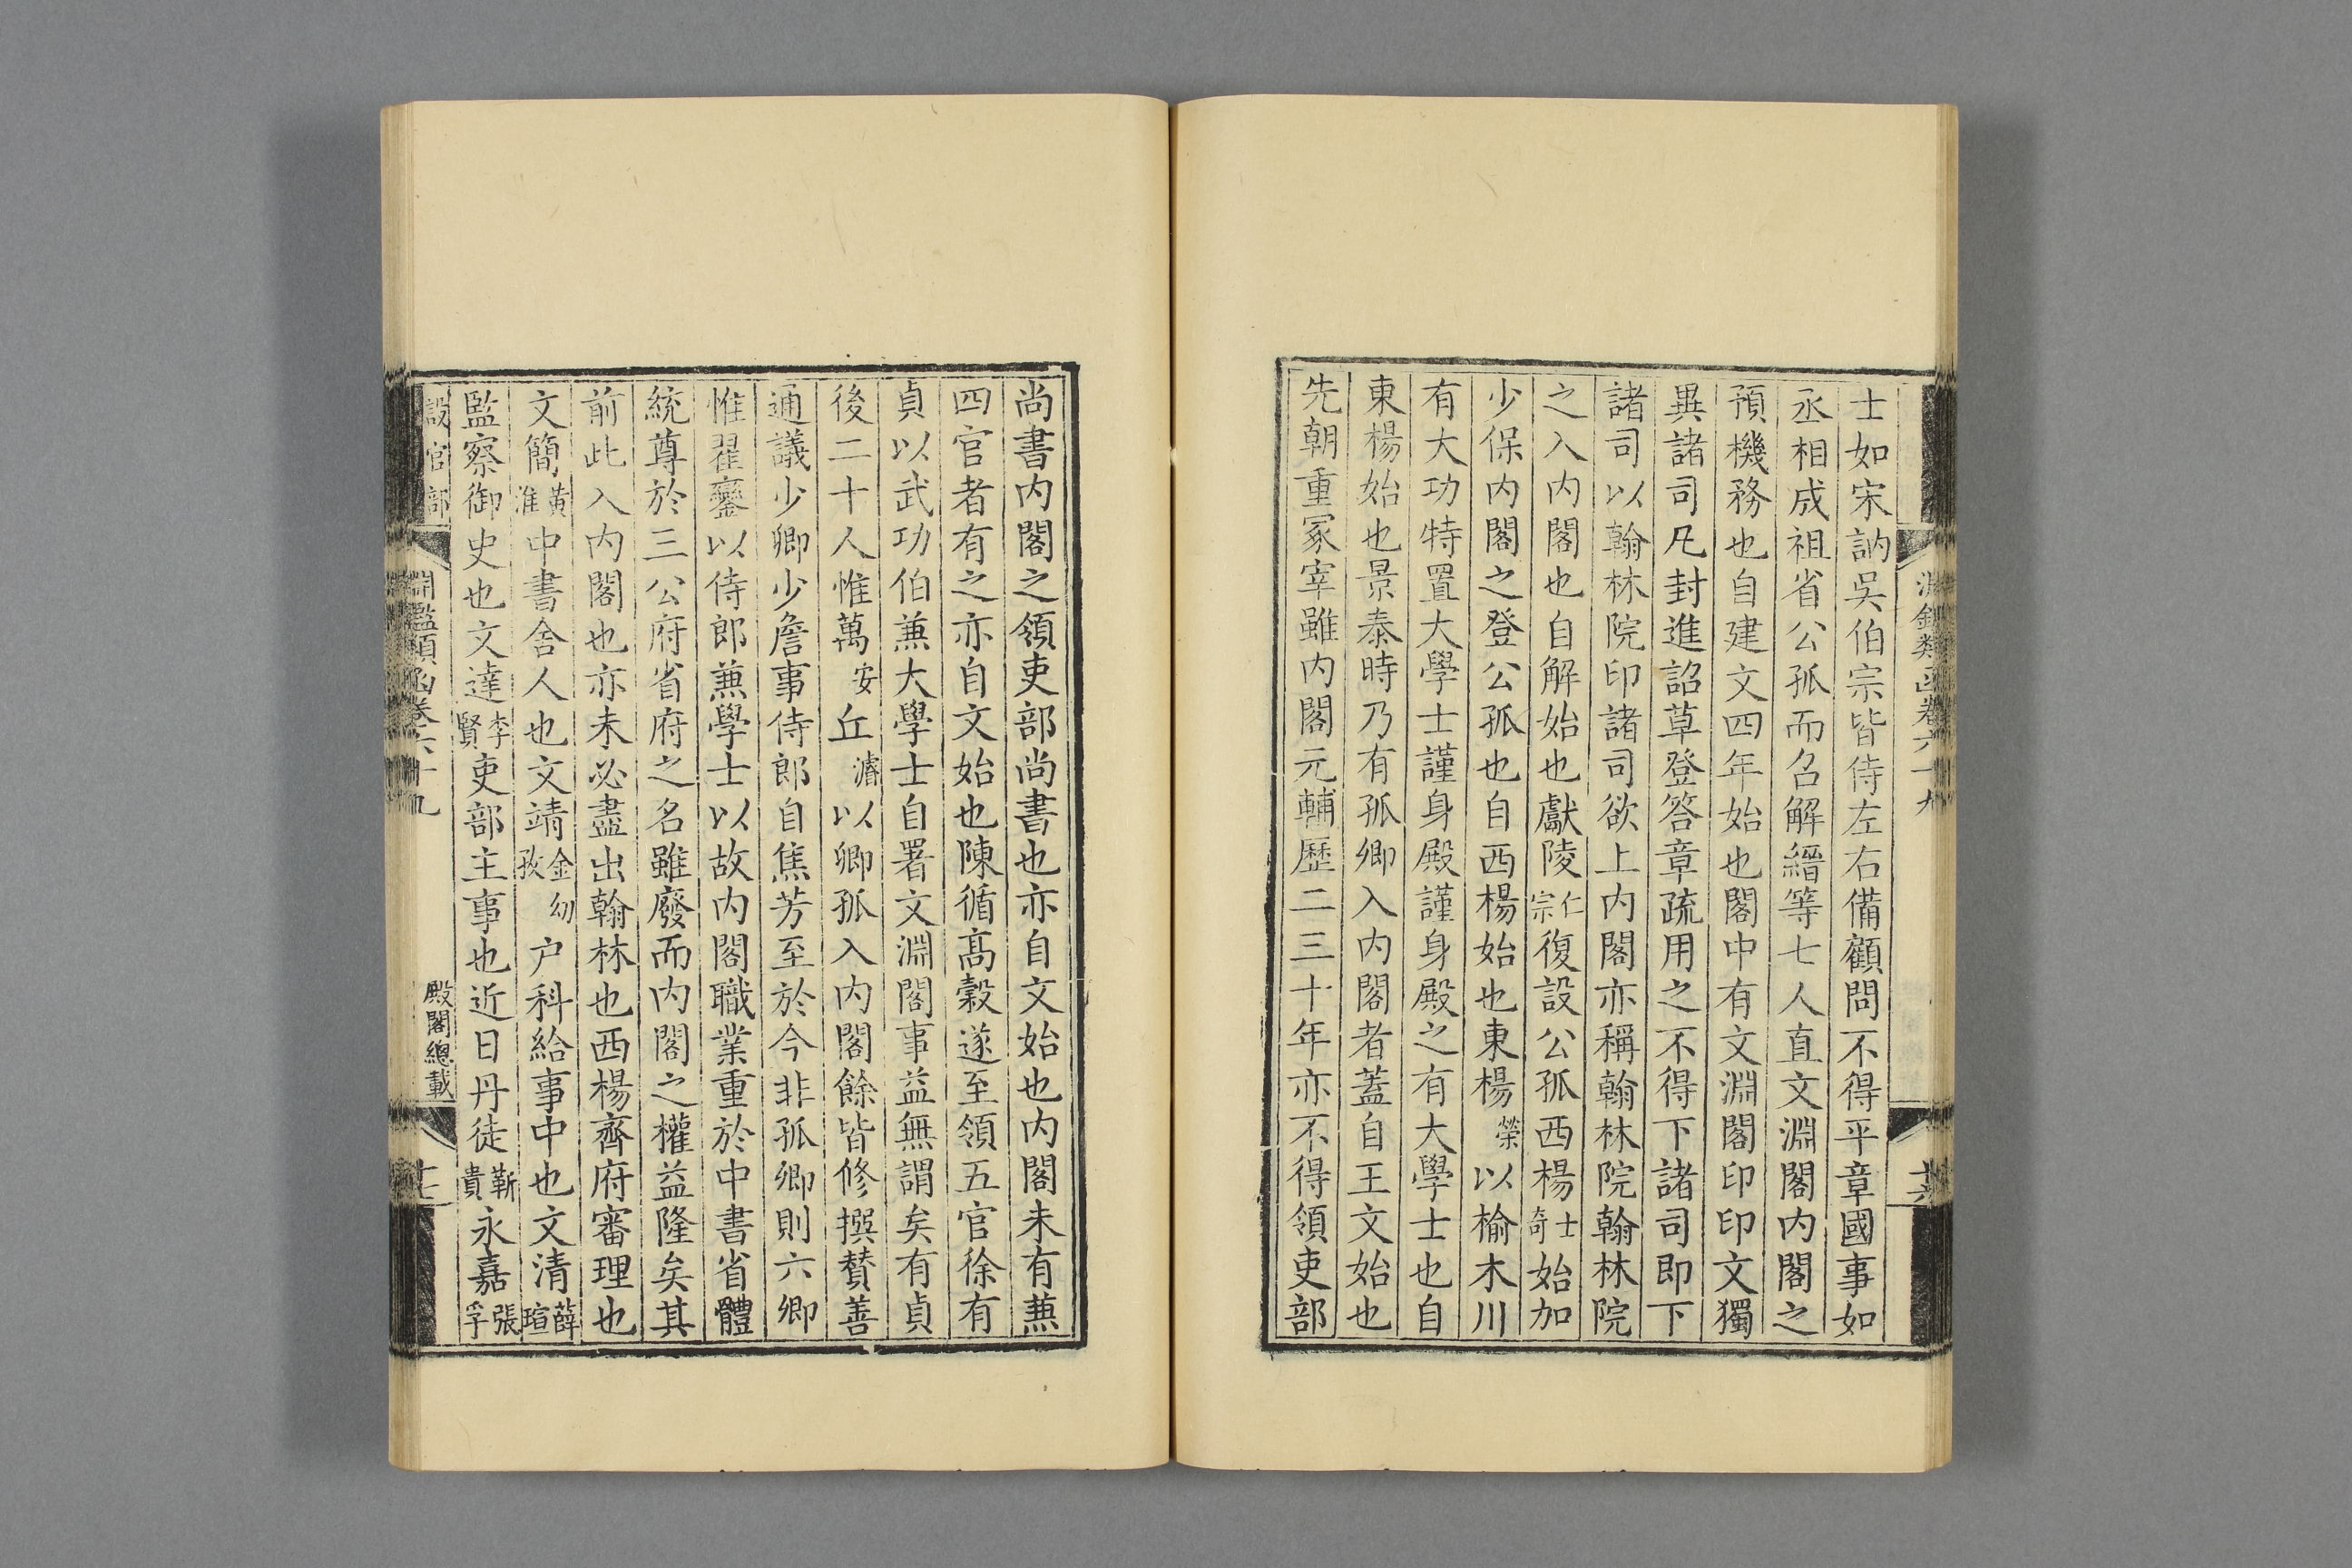 淵鑑類函卷六十九
十六
士如宋訥吳伯宗皆侍左右備顧問不得平章國事如
丞相成祖省公孤而召解縉等七人直文淵閣内閣之
預機務也自建文四年始也閣中有文淵閣印印文獨
異諸司凡封進詔草登答章疏用之不得下諸司即下
諸司以翰林院印諸司欲上内閣亦稱翰林院翰林院
之入内閣也自解始也獻陵仁宗復設公孤西楊士奇始加
少保内閣之登公孤也自西楊始也東楊榮以榆木川
有大功特置大學士謹身殿謹身殿之有大學士也自
東楊始也景泰時乃有孤卿入内閣者蓋自王文始也
先朝重冢宰雖内閣元輔歷二三十年亦不得領吏部
尚書内閣之領吏部尚書也亦自文始也内閣未有兼
四官者有之亦自文始也陳循高穀遂至領五官徐有
貞以武功伯兼大學士自署文淵閣事益無謂矣有貞
後二十人惟萬安丘濬以卿孤入内閣餘皆修撰賛善
通議少卿少詹事侍郎自焦芳至於今非孤卿則六卿
惟翟鑾以侍郎兼學士以故内閣職業重於中書省體
統尊於三公府省府之名雖廢而内閣之權益隆矣其
前此入内閣也亦未必盡出翰林也西楊齊府審理也
文簡黃淮中書舍人也文靖金幼孜户科給事中也文清薛瑄
監察御史也文達李賢吏部主事也近日丹徒靳貴永嘉張孚
設官部
淵鑑類函卷六十九
殿閣總載
十七